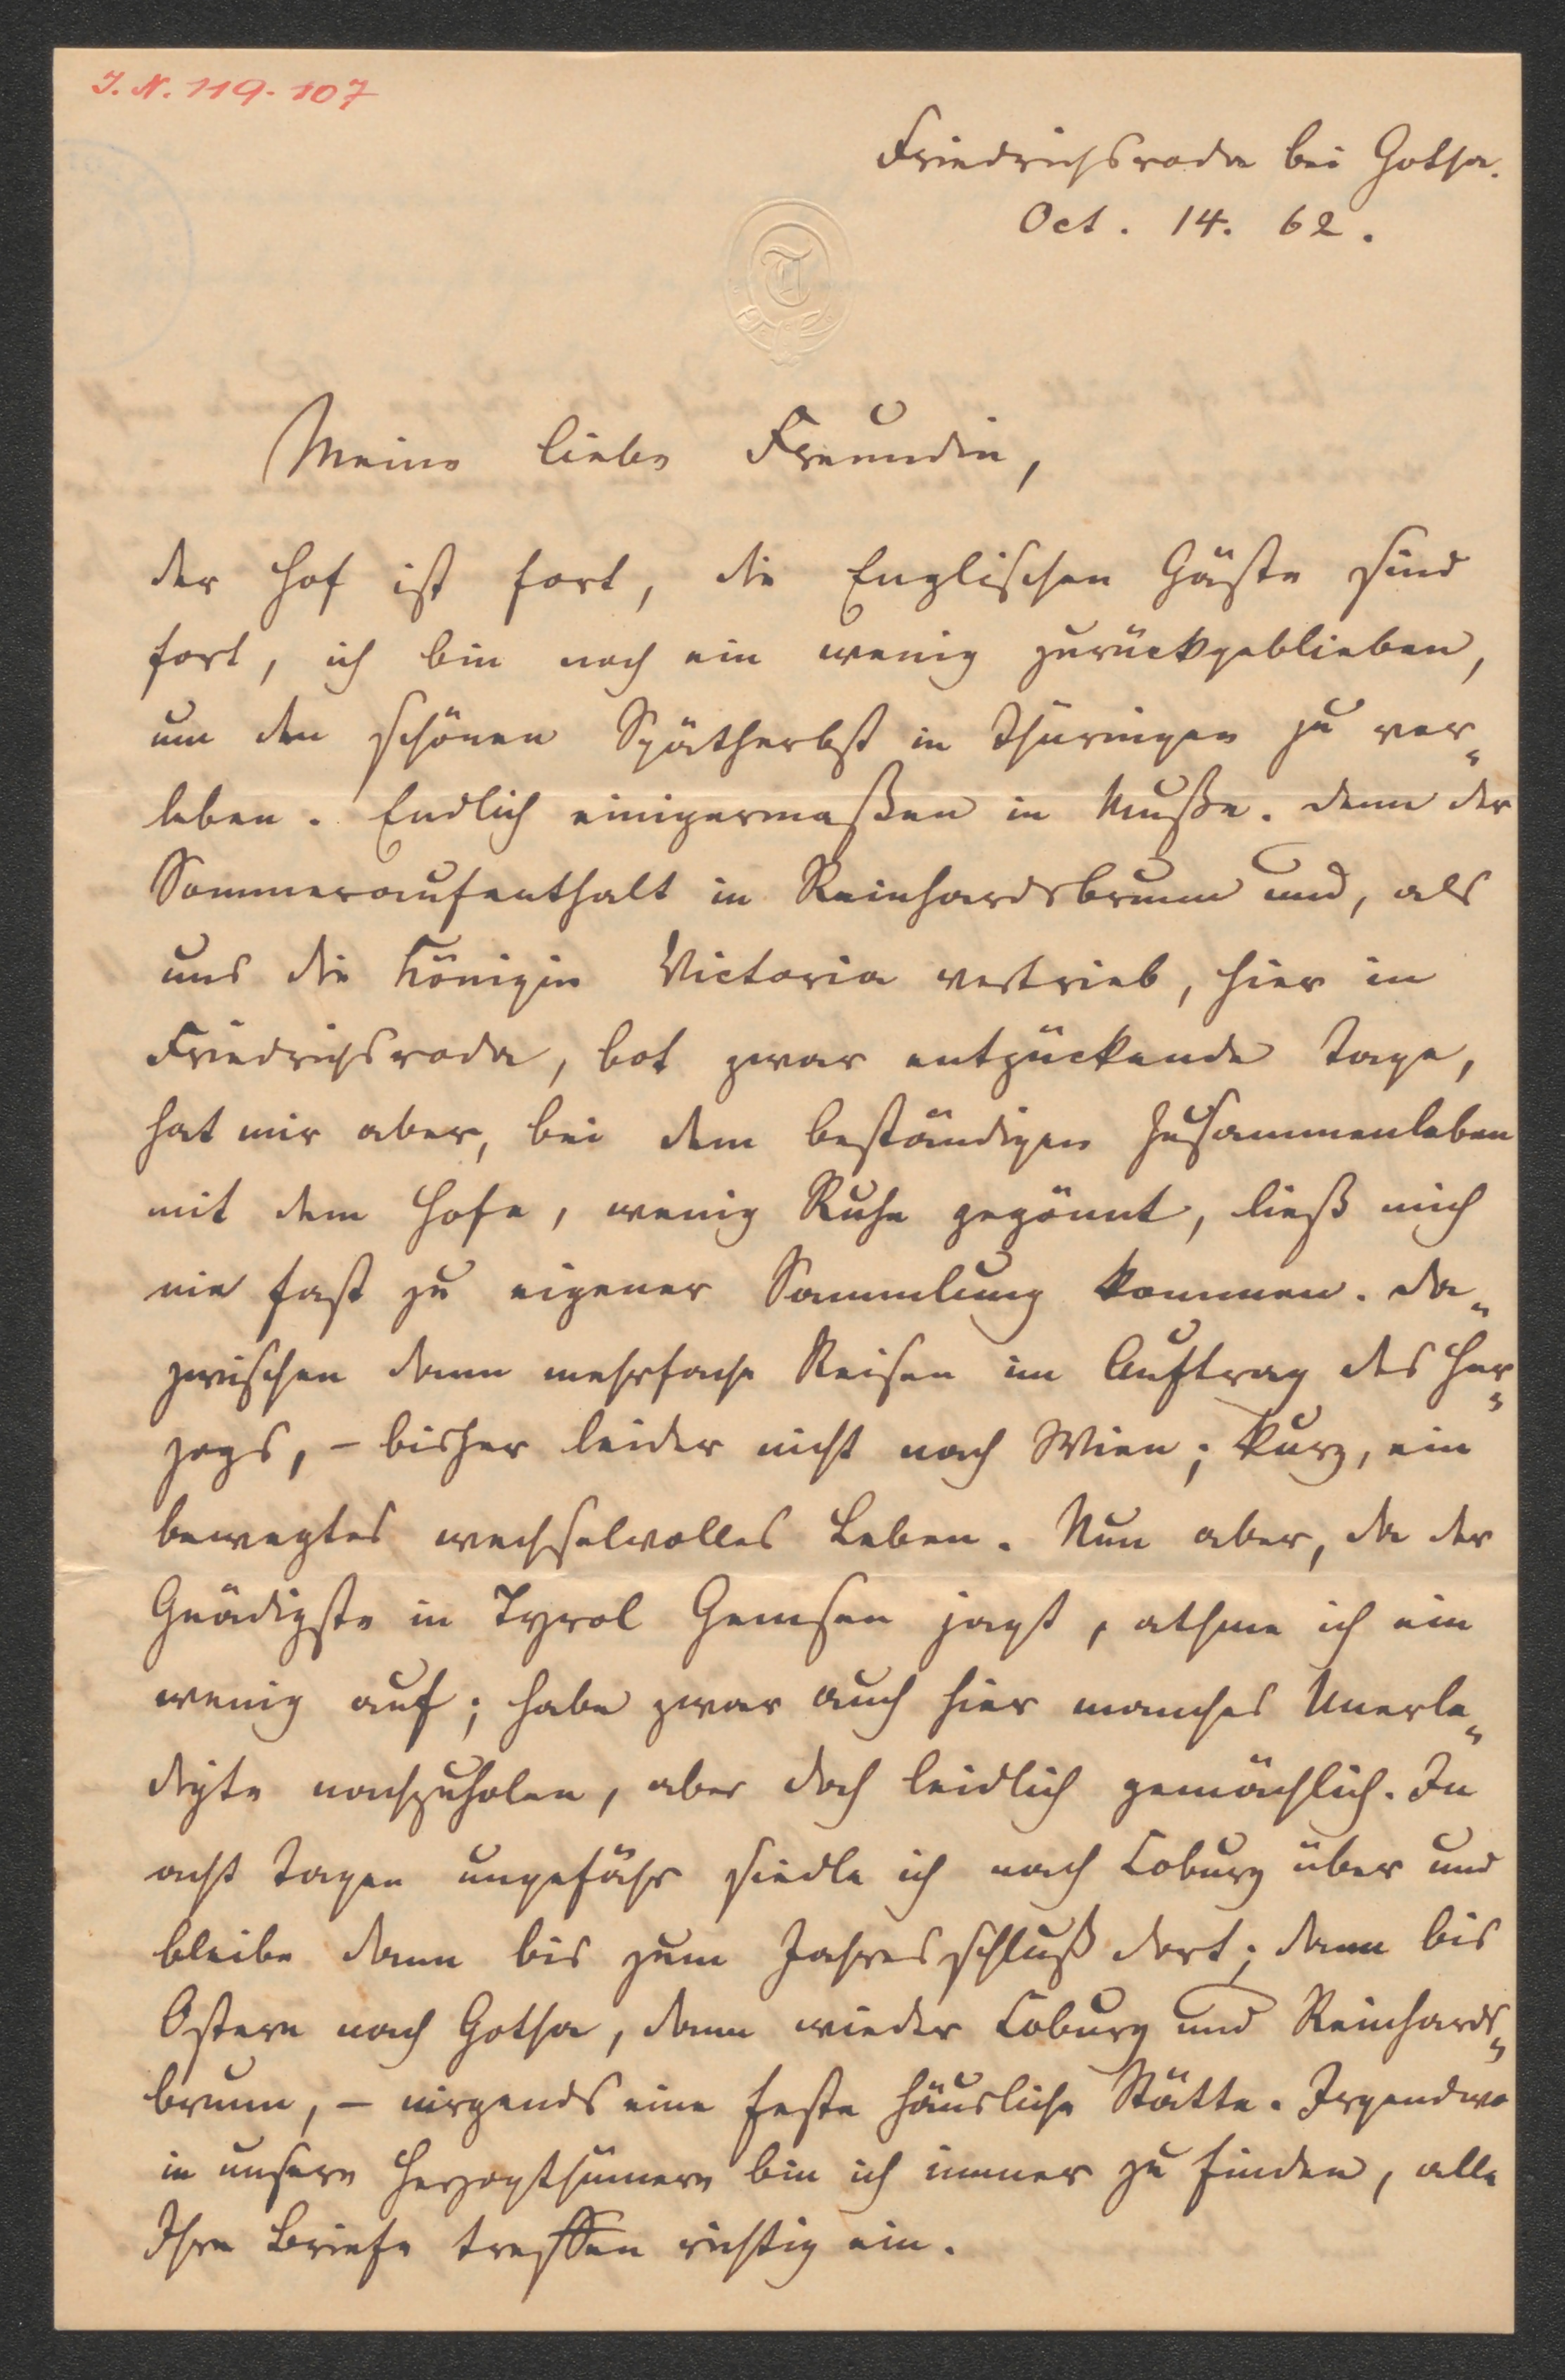 J. N. 119.107
Friedrichsroda bei Gotha.
Oct. 14. 62.
T
Meine liebe Freundin,
der Hof ist fort, die Englischen Gäste sind
fort, ich bin noch ein wenig zurückgeblieben,
um den schönen Spätherbst in Thüringen zu ver-
leben. Endlich einigermaßen in Muße. Denn der
Sommeraufenthalt in Reinhardsbrunn und, als
uns die Königin Victoria vertrieb, hier in
Friedrichsroda, bot zwar entzückende Tage,
hat mir aber, bei dem beständigen Zusammenleben
mit dem Hofe, wenig Ruhe gegönnt, ließ mich
nie fast zu eigener Sammlung kommen. Da-
zwischen dann mehrfache Reisen im Auftrag des Her-
zogs, – bisher leider nicht nach Wien; kurz, ein
bewegtes wechselvolles Leben. Nun aber, da der
Gnädigste in Tyrol Gemsen jagt, athme ich ein
wenig auf; habe zwar auch hier manches Unerle-
digte nachzuholen, aber doch leidlich gemächlich. In
acht Tagen ungefähr siedle ich nach Coburg über und
bleibe dann bis zum Jahresschluß dort; dann bis
Ostern nach Gotha, dann wieder Coburg und Reinhards-
brunn, – nirgends eine feste häusliche Stätte. Irgendwo
in unsern Herzogthümern bin ich immer zu finden, alle
Ihre Briefe treffen richtig ein.